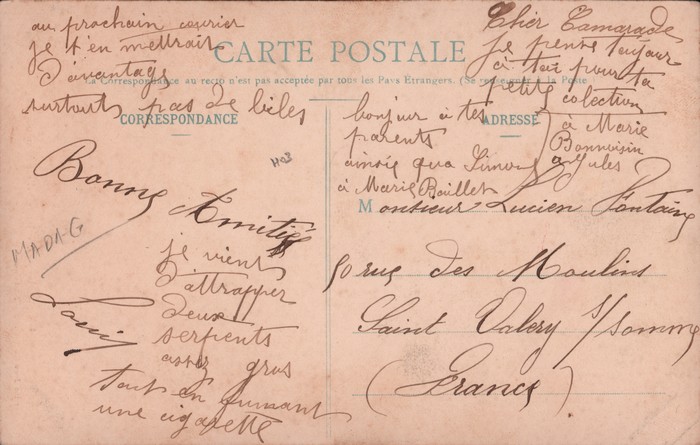 au prochain courrier
je t'en mettrait
d'avantage
surtout pas de biles
Cher Camarade
je pense toujour
à toi pour ta
petite colection
CARTE POSTALE
La Correspondance au recto n'est pas acceptée par tous les Pays Étrangers. (Se renseigner à la Poste
CORRESPONDANCE
ADRESSE
bonjur à tes
parents
ainsie qua Simone
à Marie Baillet
à Marie
Bonnoisin
a Jules
Bonne Amitié
MADAG
Louis
je vient
d'attrapper
deux
serpents
assez gros
tout en fumant
une cigarette
Monsieur Lucien Fontaine
50 rue des Moulins
Saint Valery s/somme
(France)